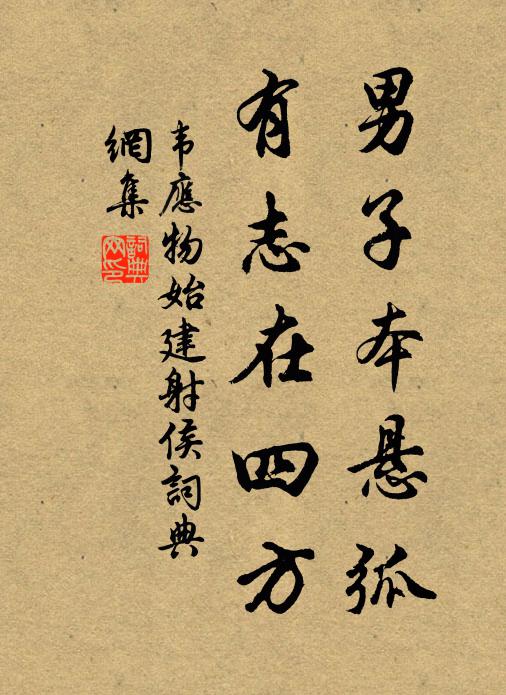 男子本悬弧
有志在四方
韦應物始建射侯詞典
網集
詞典
网印